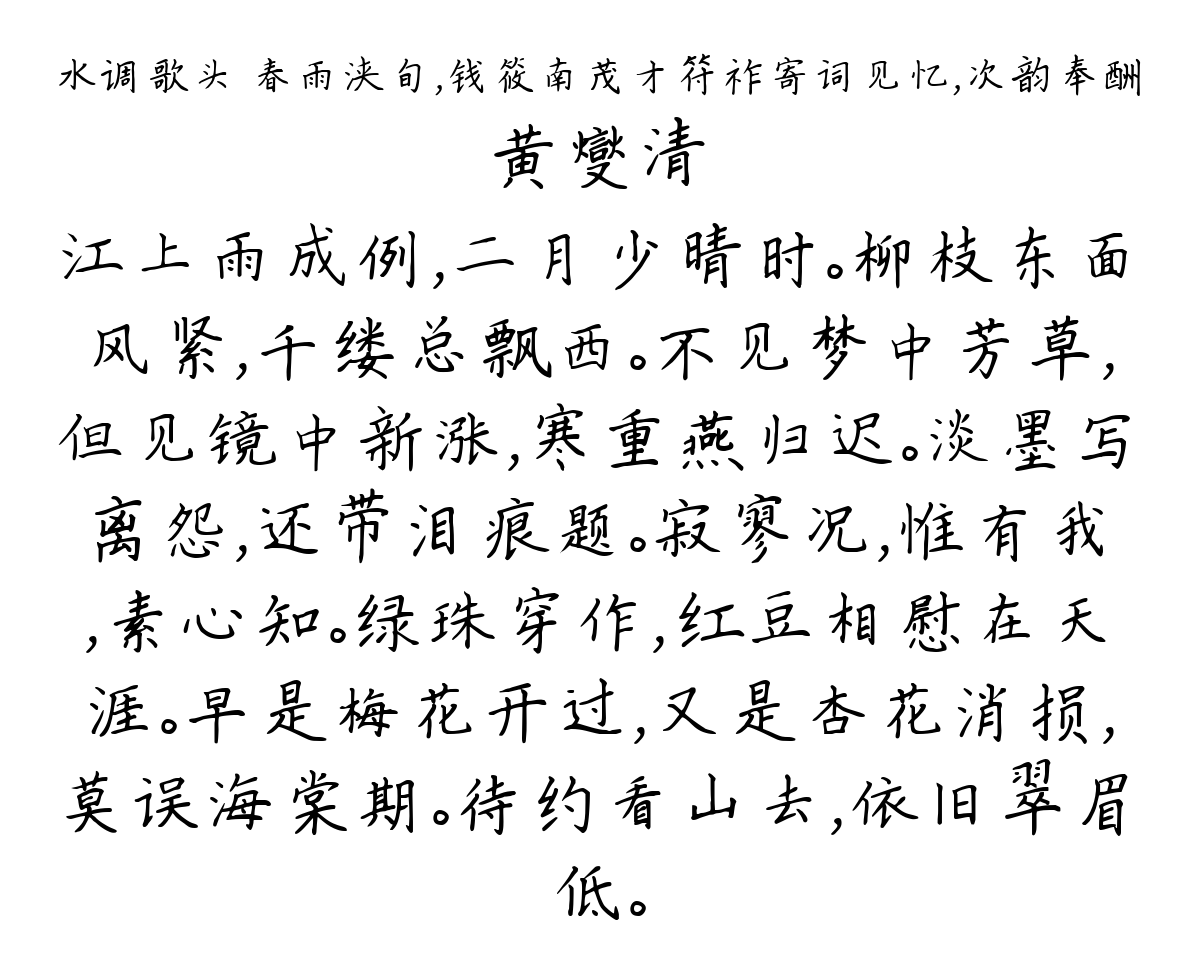 水调歌头 春雨浃旬,钱筱南茂才符祚寄词见忆,次韵奉酬
黄燮清
江上雨成例,二月少晴时。柳枝东面
风紧,千缕总飘西。不见梦中芳草,
但见镜中新涨,寒重燕归迟。淡墨写
离怨,还带泪痕题。寂寥况,惟有我
,素心知。绿珠穿作,红豆相慰在天
涯。早是梅花开过,又是杏花消损,
莫误海棠期。待约看山去,依旧翠眉
低。